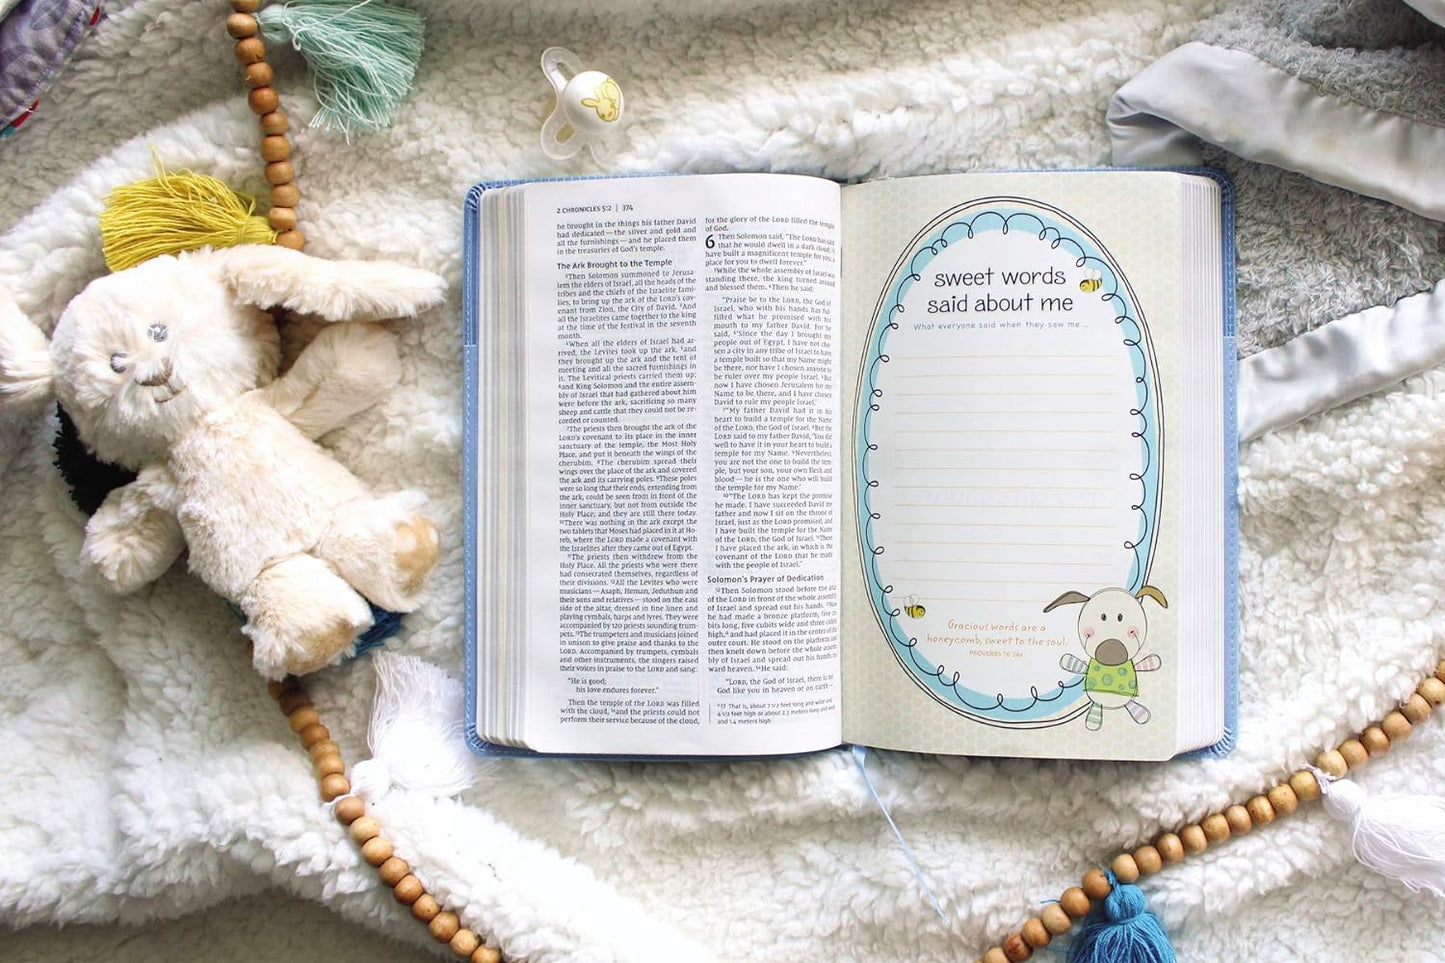 2 CHRONICLES 5:2 | 374
he brought in the things his father David
had dedicated—the silver and gold and
all the furnishings—and he placed them
in the treasuries of God's temple.
The Ark Brought to the Temple
2Then Solomon summoned to Jerusa-
lem the elders of Israel, all the heads of the
tribes and the chiefs of the Israelite fami-
lies, to bring up the ark of the LORD's cov-
enant from Zion, the City of David. 3And
all the Israelites came together to the king
at the time of the festival in the seventh
month.
4When all the elders of Israel had ar-
rived, the Levites took up the ark, 5and
they brought up the ark and the tent of
meeting and all the sacred furnishings in
it. The Levitical priests carried them up;
6and King Solomon and the entire assem-
bly of Israel that had gathered about him
were before the ark, sacrificing so many
sheep and cattle that they could not be re-
corded or counted.
7The priests then brought the ark of the
LORD's covenant to its place in the inner
sanctuary of the temple, the Most Holy
Place, and put it beneath the wings of the
cherubim. 8The cherubim spread their
wings over the place of the ark and covered
the ark and its carrying poles. 9These poles
were so long that their ends, extending from
the ark, could be seen from in front of the
inner sanctuary, but not from outside the
Holy Place; and they are still there today.
10There was nothing in the ark except the
two tablets that Moses had placed in it at Ho-
reb, where the LORD made a covenant with
the Israelites after they came out of Egypt.
11The priests then withdrew from the
Holy Place. All the priests who were there
had consecrated themselves, regardless of
their divisions. 12All the Levites who were
musicians—Asaph, Heman, Jeduthun and
their sons and relatives—stood on the east
side of the altar, dressed in fine linen and
playing cymbals, harps and lyres. They were
accompanied by 120 priests sounding trum-
pets. 13The trumpeters and musicians joined
in unison to give praise and thanks to the
LORD. Accompanied by trumpets, cymbals
and other instruments, the singers raised
their voices in praise to the LORD and sang:
"He is good;
his love endures forever."
Then the temple of the LORD was filled
with the cloud, 14and the priests could not
perform their service because of the cloud,
for the glory of the LORD filled the temple
of God.
6 Then Solomon said, "The LORD has said
that he would dwell in a dark cloud; 2I
have built a magnificent temple for you, a
place for you to dwell forever."
3While the whole assembly of Israel was
standing there, the king turned around
and blessed them. 4Then he said:
"Praise be to the LORD, the God of
Israel, who with his hands has ful-
filled what he promised with his
mouth to my father David. For he
said, 5'Since the day I brought my
people out of Egypt, I have not cho-
sen a city in any tribe of Israel to have
a temple built so that my Name might
be there, nor have I chosen anyone to
be ruler over my people Israel. 6But
now I have chosen Jerusalem for my
Name to be there, and I have chosen
David to rule my people Israel.'
7"My father David had it in his
heart to build a temple for the Name
of the LORD, the God of Israel. 8But the
LORD said to my father David, 'You did
well to have it in your heart to build a
temple for my Name. 9Nevertheless,
you are not the one to build the tem-
ple, but your son, your own flesh and
blood—he is the one who will build
the temple for my Name.'
10"The LORD has kept the promise
he made. I have succeeded David my
father and now I sit on the throne of
Israel, just as the LORD promised, and
I have built the temple for the Name
of the LORD, the God of Israel. 11There
I have placed the ark, in which is the
covenant of the LORD that he made
with the people of Israel."
Solomon's Prayer of Dedication
12Then Solomon stood before the altar
of the LORD in front of the whole assembly
of Israel and spread out his hands. 13Now
he had made a bronze platform, five cu-
bits long, five cubits wide and three cubits
high,a and had placed it in the center of the
outer court. He stood on the platform and
then knelt down before the whole assem-
bly of Israel and spread out his hands to-
ward heaven. 14He said:
"LORD, the God of Israel, there is no
God like you in heaven or on earth—
a 13 That is, about 7 1/2 feet long and wide and
4 1/2 feet high or about 2.3 meters long and wide
and 1.4 meters high
sweet words
said about me
What everyone said when they saw me...
Gracious words are a
honeycomb, sweet to the soul.
PROVERBS 16:24a